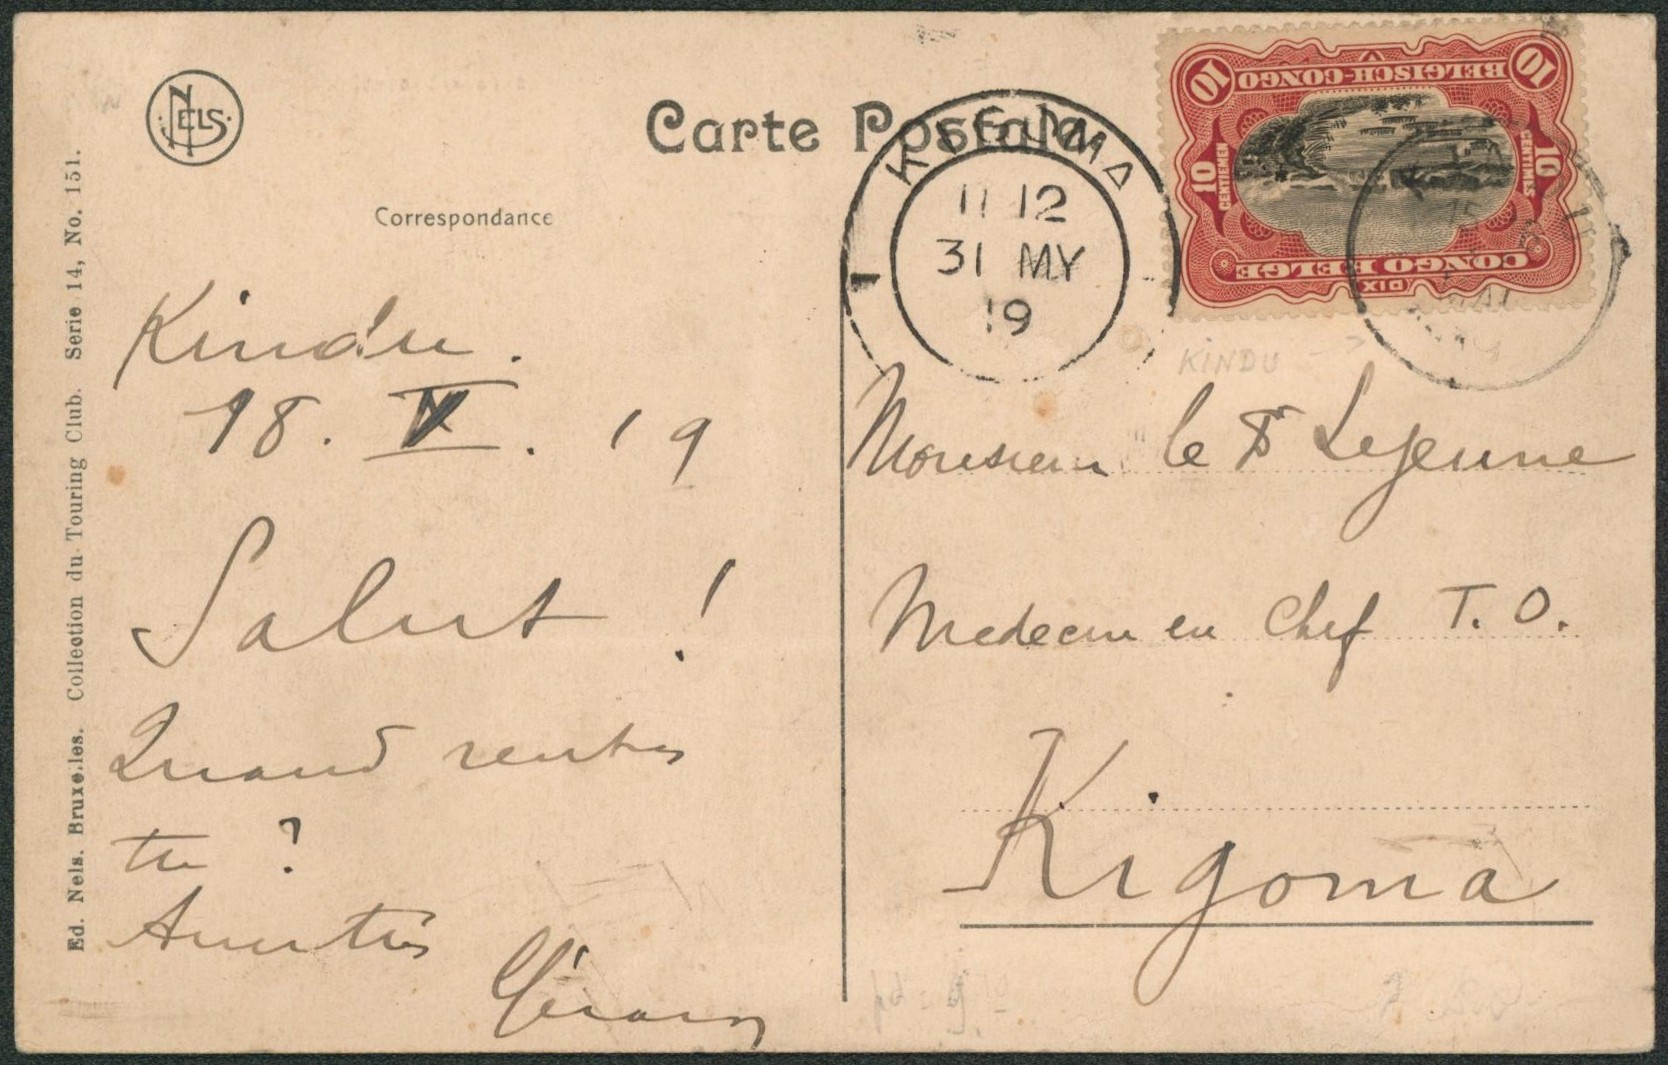 NELS.
Carte Postale
Correspondance
Ed. Nels. Bruxelles. Collection du Touring Club. Serie 14, No. 151.
KIGOMA
11 12
31 MY
19
1
BELGISCH-CONGO
10 10
10 CENTIEMEN
10 CENTIMES
CONGO BELGE
DIX
15
MAI
KINDU ->
Kindu.
18. V. 19
Salut !
Quand rentres
tu ?
Monsieur le Dr Lejeune
Medecin en Chef T. O.
Kigoma